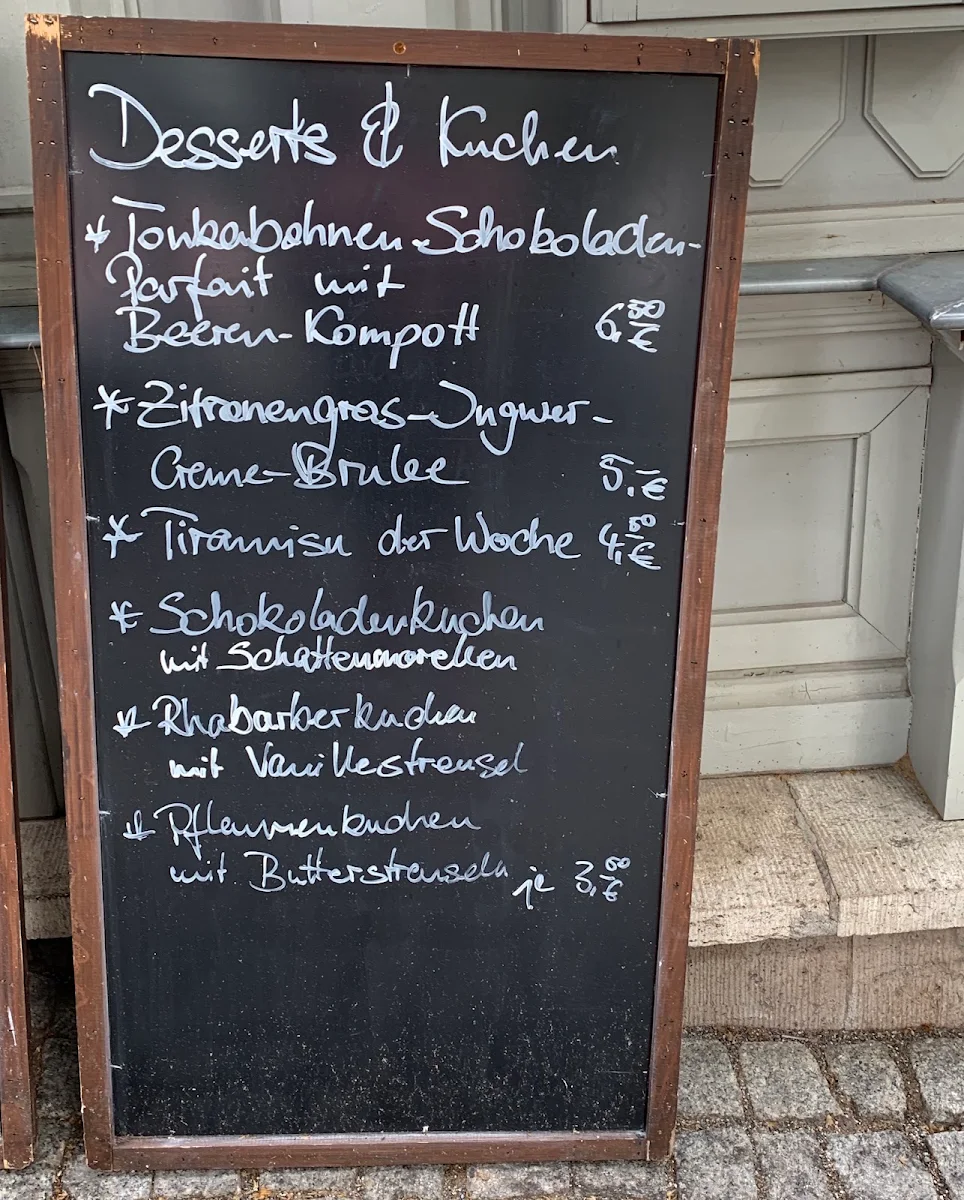 Desserts & Kuchen
* Tonkabohnen-Schokoladen-
Parfait mit
Beeren-Kompott 6,50 €
* Zitronengras-Ingwer-
Creme-Brulee 5,- €
* Tiramisu der Woche 4,80 €
* Schokoladenkuchen
mit Schattenmorellen
* Rhabarberkuchen
mit Vanillestreusel
* Pflaumenkuchen
mit Butterstreuseln je 3,60 €